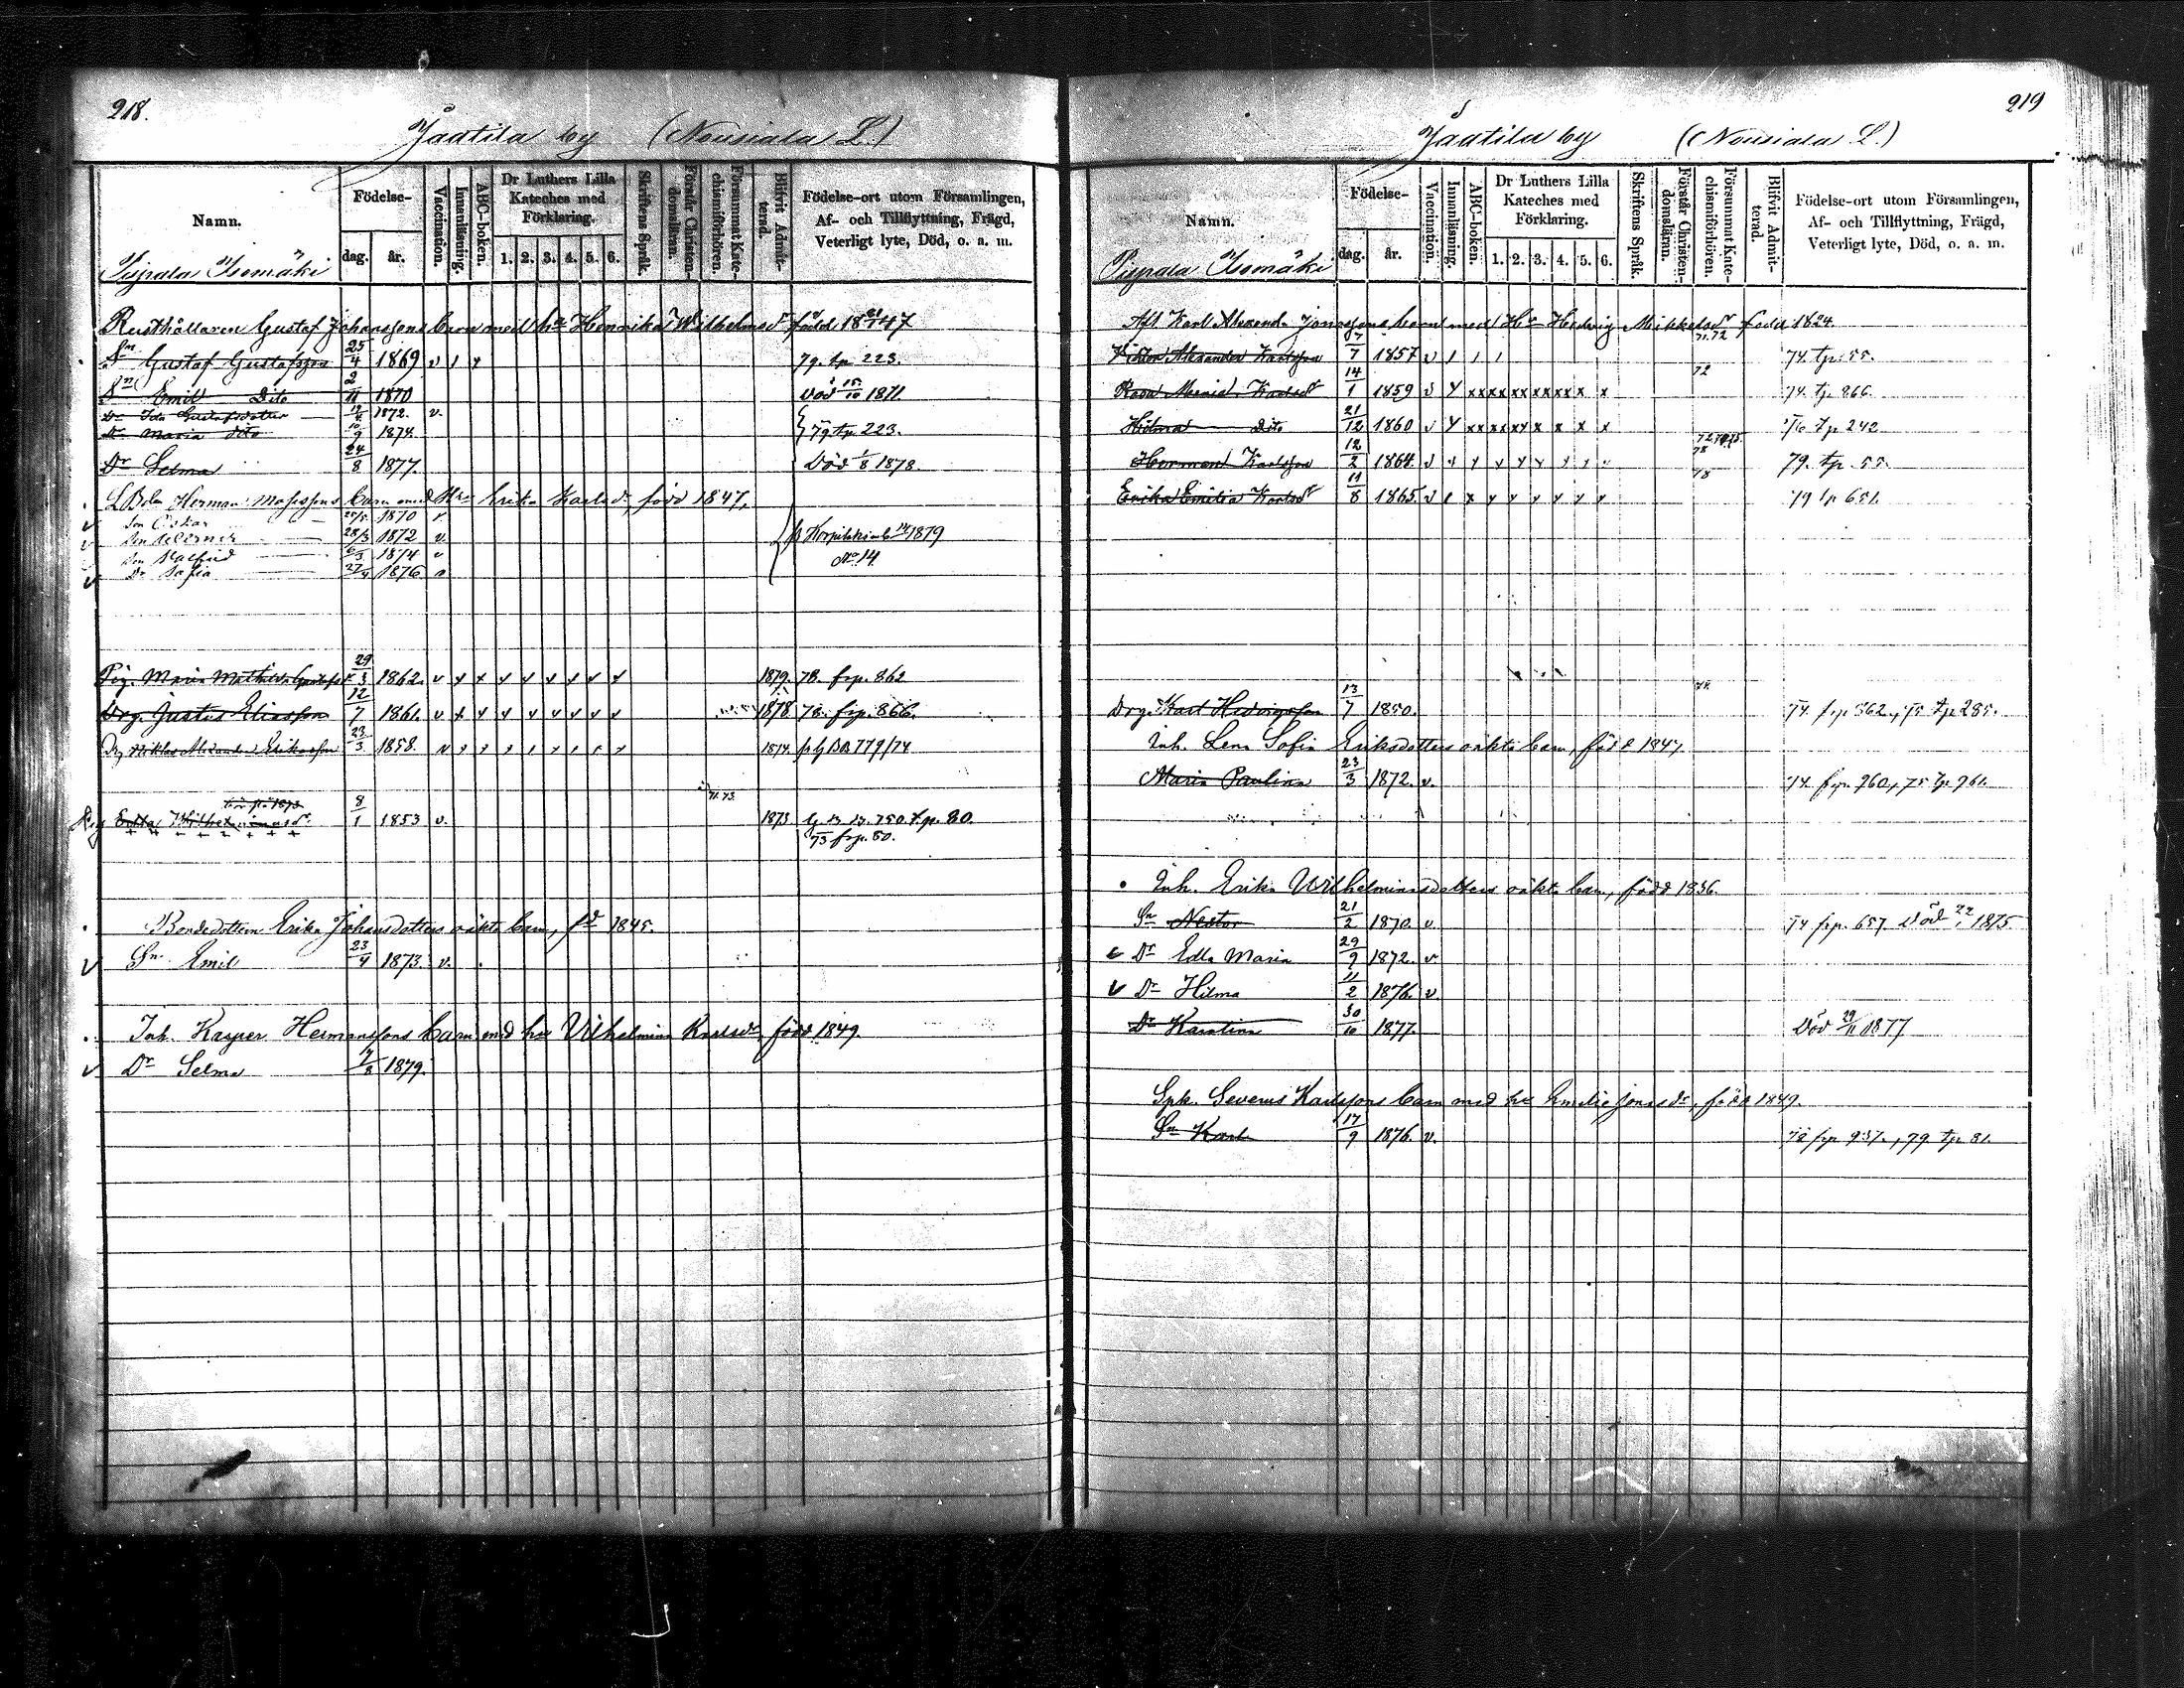 218.
Jaatila by (Nousiala L.)
Namn.
Födelse-
dag. år.
Vaccination.
Innanläsning.
ABC-boken.
Dr Luthers Lilla Kateches med Förklaring.
1. 2. 3. 4. 5. 6.
Skriftens Språk.
Förstår Christen-domsläran.
Försummat Kate-chismiförhören.
Blifvit Admit-terad.
Födelse-ort utom Församlingen, Af- och Tillflyttning, Frägd, Veterligt lyte, Död, o. a. m.
Pispala Isomäki
Rusthållaren Gustaf Johanssons barn med hu Henrika Wilhelmsdr född 18 21/1 47
Sn Gustaf Gustafsson 25/4 1869 v 79. tp 223.
Sn Emil Dito 2/11 1870 Död 15/10 1871
Dr Ida Gustafsdotter 1872. v.
Dr Maria dito 10/9 1874. 79 tp 223.
Dr Selma 24/8 1877. Död 1/8 1878
Herman barn med Hu Erika Karlsdr, född 1847,
Son Oskar 1870
Son Werner 28/3 1872 v.
Son 6/3 1874 v
Dr Sofia 27/4 1876
1879
No 14
Pig. Maria Mathilda 29/3 1862. v x x v v v v v v 1879. 78. frp. 862
Drg. Justus Eliasson 12/7 1861. v x v v v v v v v 1878. 78. frp. 866.
Drg Viktor Alexander Eriksson 23/3 1858. 1874. BB 779/74
71. 73.
Pig Edla Wilhelminasdr. 8/1 1853 v. 1873 750 t.p. 80.
73 frp. 80.
Bondedottern Erika Johansdotters oäkta barn, fd 1845.
Sn Emil 23/4 1873. v.
Inh. Kasper Hermanssons barn med hu Vilhelmina Karlsdr, född 1849.
Dr Selma 7/8 1879.
219
Jaatila by (Nousiala L.)
Namn.
Födelse-
dag. år.
Vaccination.
Innanläsning.
ABC-boken.
Dr Luthers Lilla Kateches med Förklaring.
1. 2. 3. 4. 5. 6.
Skriftens Språk.
Förstår Christen-domsläran.
Försummat Kate-chismiförhören.
Blifvit Admit-terad.
Födelse-ort utom Församlingen, Af- och Tillflyttning, Frägd, Veterligt lyte, Död, o. a. m.
Pispala Isomäki
Karl Alexand. Jonassons barn med Hu Hedvig Mikkelsdr född 1824.
Viktor Alexander Karlsson 7 1857 v 71. 72 74. tp. 55.
Maria Karlsdr 14/1 1859 72 74. tp. 866.
Hilma Dito 21/12 1860 tp 242
Herman Karlsson 12/2 1864. 78 79. tp. 55.
Erika Emilia Karlsdr 11/8 1865. 78 79 tp 651.
Drg. Karl Hedvigsson 13/7 1850. 74. frp 562., 75 tp 285.
Inh. Lena Sofia Eriksdotters oäkta barn, född 1847.
Maria Paulina 23/3 1872. v. 74. frp. 960., 75 tp. 961.
Inh. Erika Wilhelminasdotters oäkta barn, född 1836.
Sn Nestor 21/2 1870. v. 74 frp. 657. Död 1875
Dr Edla Maria 29/9 1872. v
Dr Hilma 11/2 1876. v.
Dr Karolina 30/10 1877 Död 29/11 1877
Sph. Severus Karlssons barn med hu Emilie Jonasdr, född 1849.
Sn Karl 17/9 1876. v. 78 frp 937., 79. tp 81.